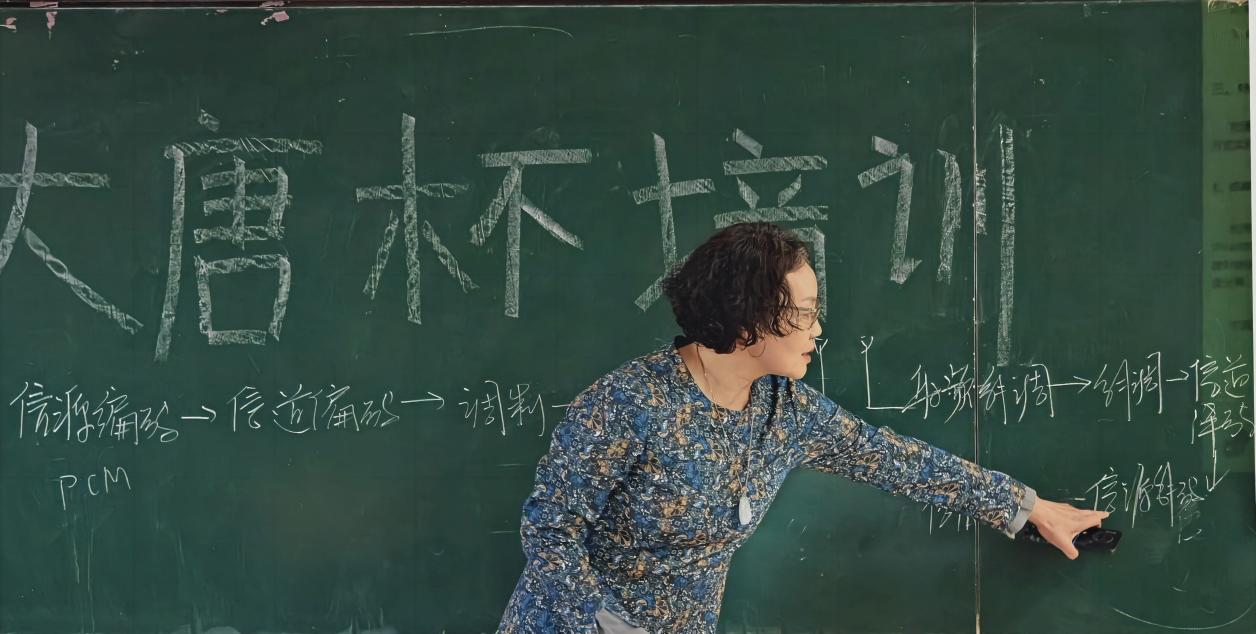 大唐杯培训
信源编码→信道编码→调制
射频解调→解调→信道
译码
PCM
信源解码